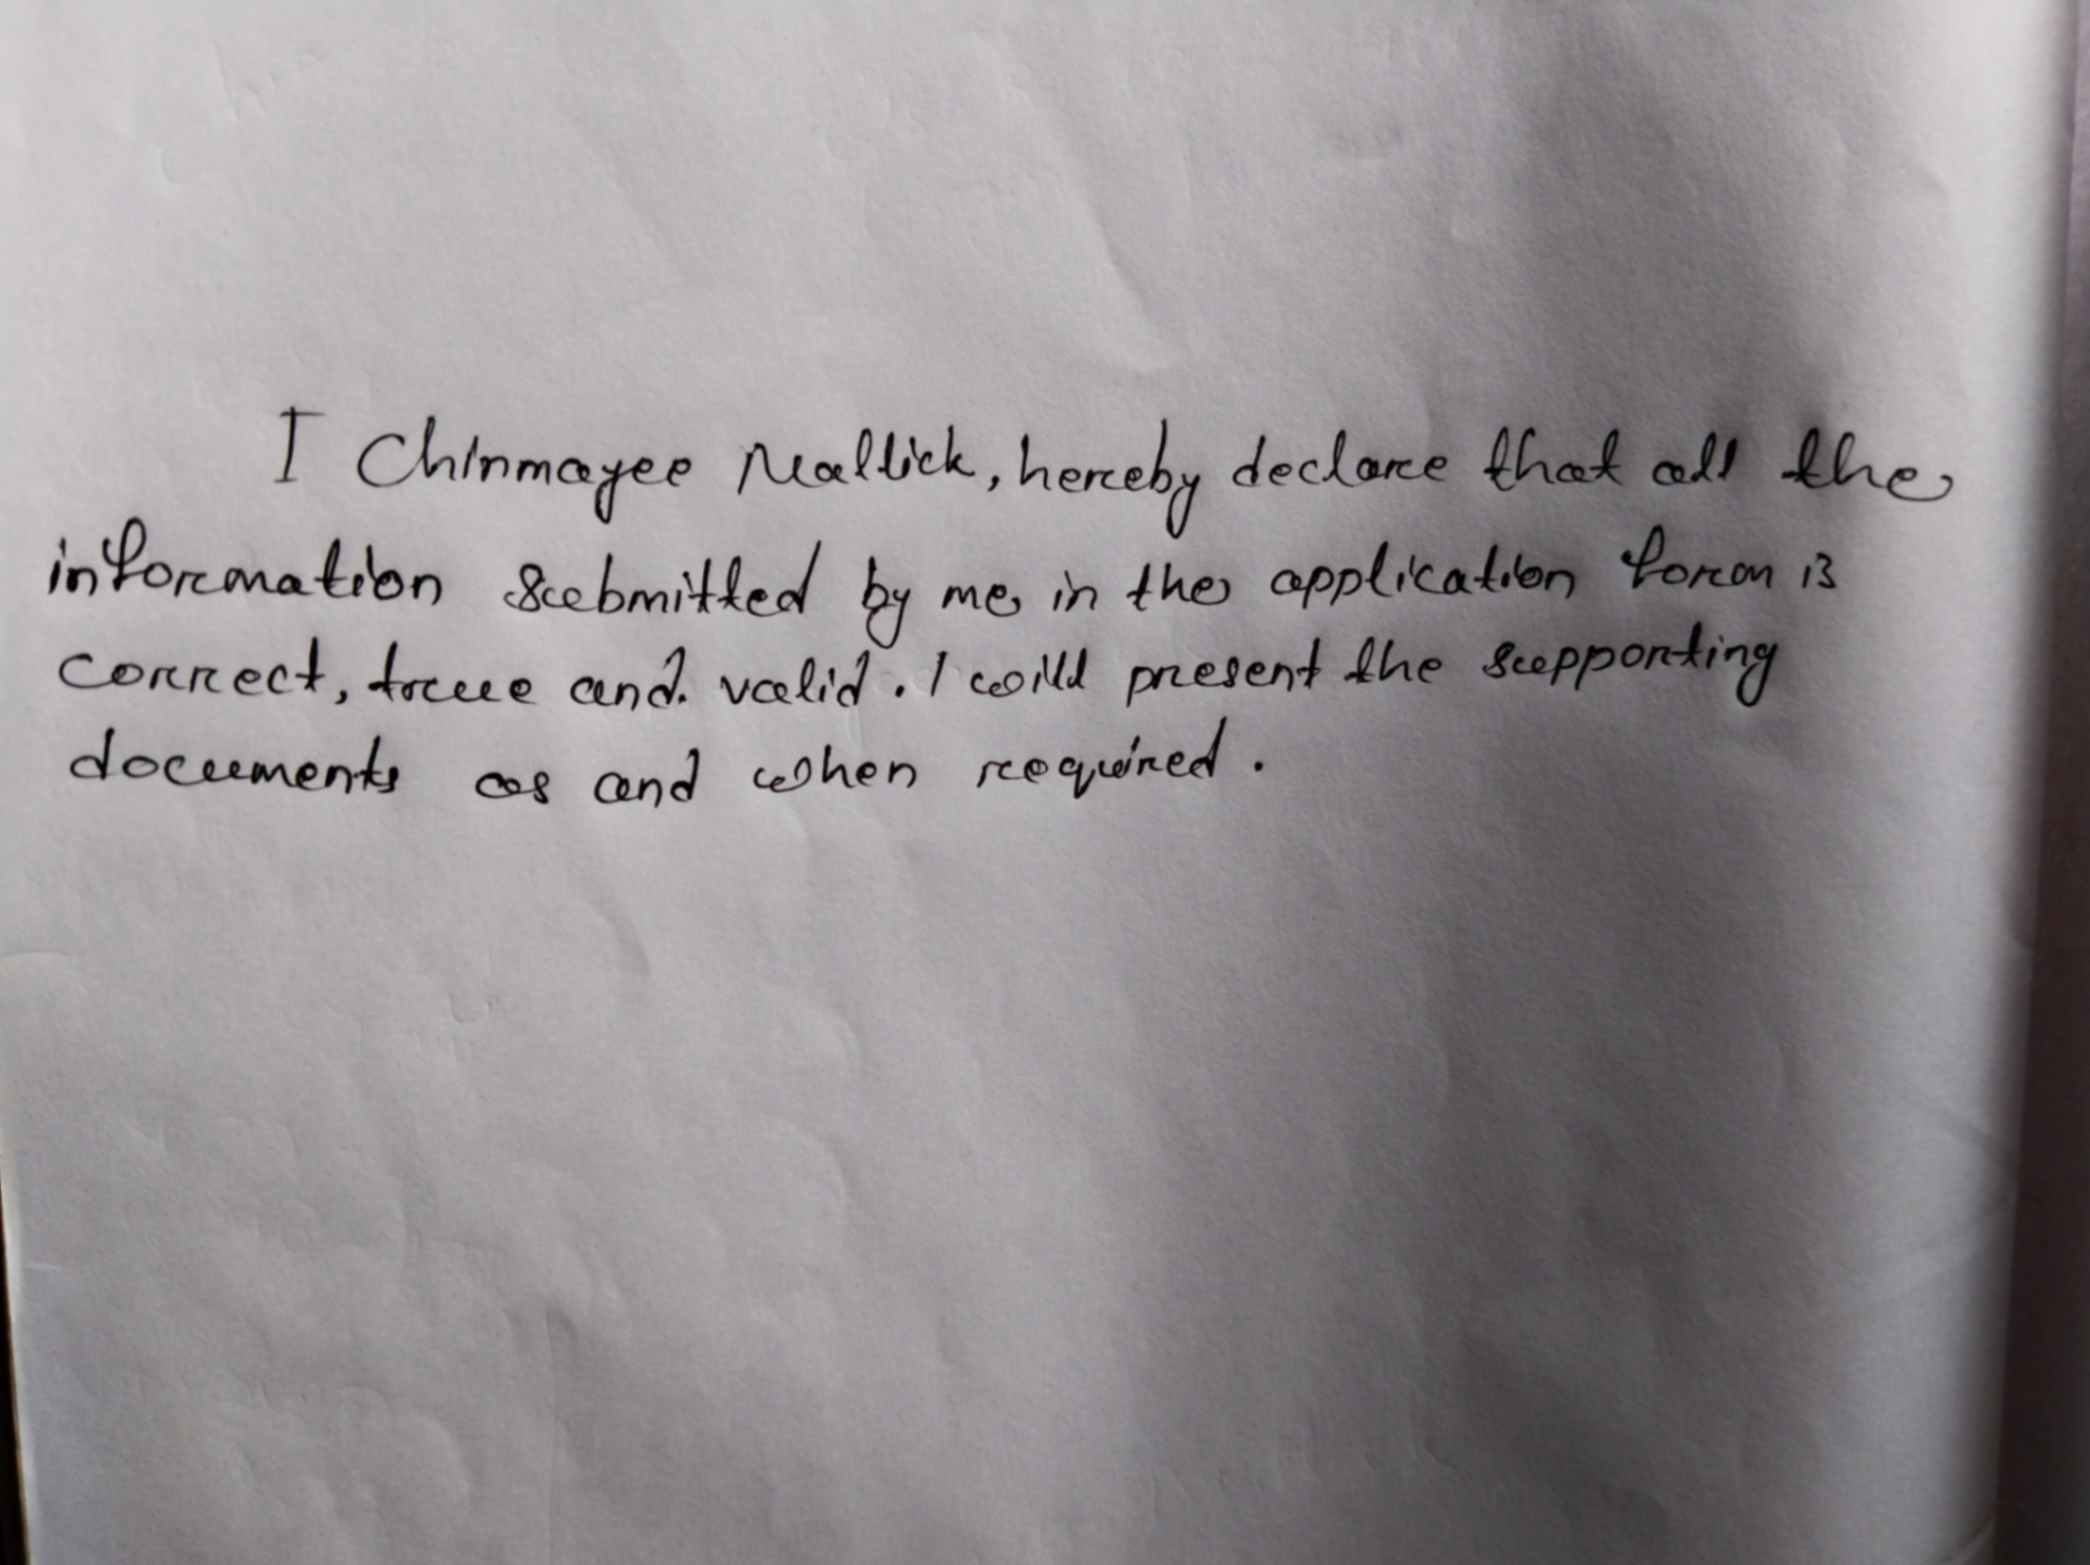 I Chinmayee Mallick, hereby declare that all the
information submitted by me in the application form is
correct, true and. valid. I will present the supporting
documents as and when required.